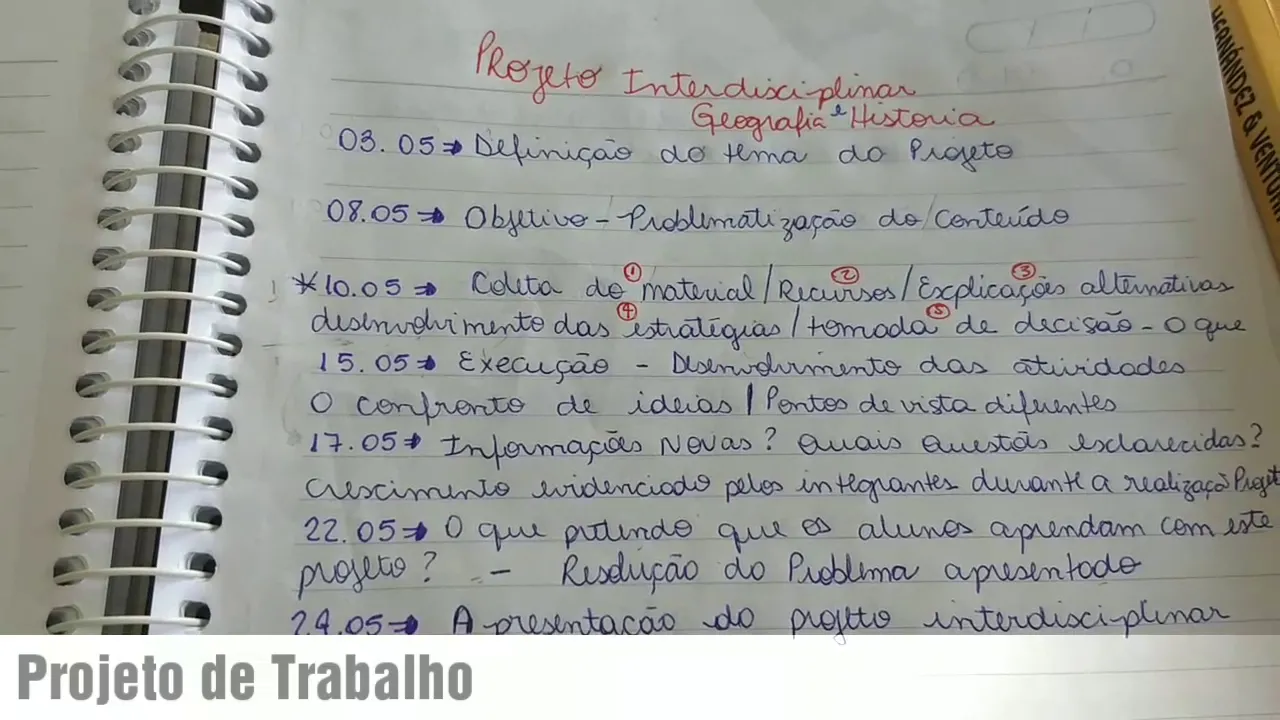 Projeto Interdisciplinar
Geografia e Historia
03.05⇒ Definição do tema do Projeto
08.05⇒ Objetivo - Problematização do Conteúdo
*10.05⇒ Coleta do ① material / ② Recursos / ③ Explicações alternativas
desenvolvimento das ④ estratégias / tomada ⑤ de decisão - O que
15.05⇒ Execução - Desenvolvimento das atividades
O confronto de ideias / Pontos de vista diferentes
17.05⇒ Informações Novas? Quais Questões esclarecidas?
Crescimento evidenciado pelos integrantes durante a realização Projet
22.05⇒ O que pretendo que os alunos aprendam com este
projeto? - Resolução do Problema apresentado
24.05⇒ Apresentação do projeto interdisciplinar
HERNÁNDEZ & VENTUR
Projeto de Trabalho